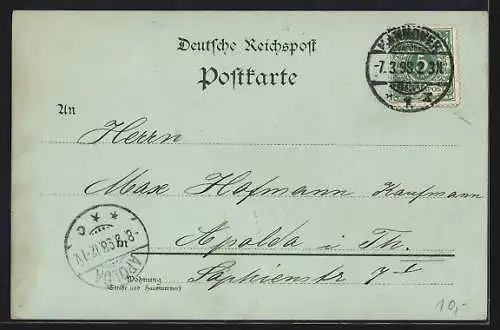 Deutsche Reichspost
Postkarte
HANNOVER
-7.3.98.2-3N.
1
5
An
Herrn
Max Hofmann Kaufmann
Apolda i Th.
Sophienstr 7 I
APOLDA
8.3.98.
C
Wohnung
(Straße und Hausnummer)
10,-